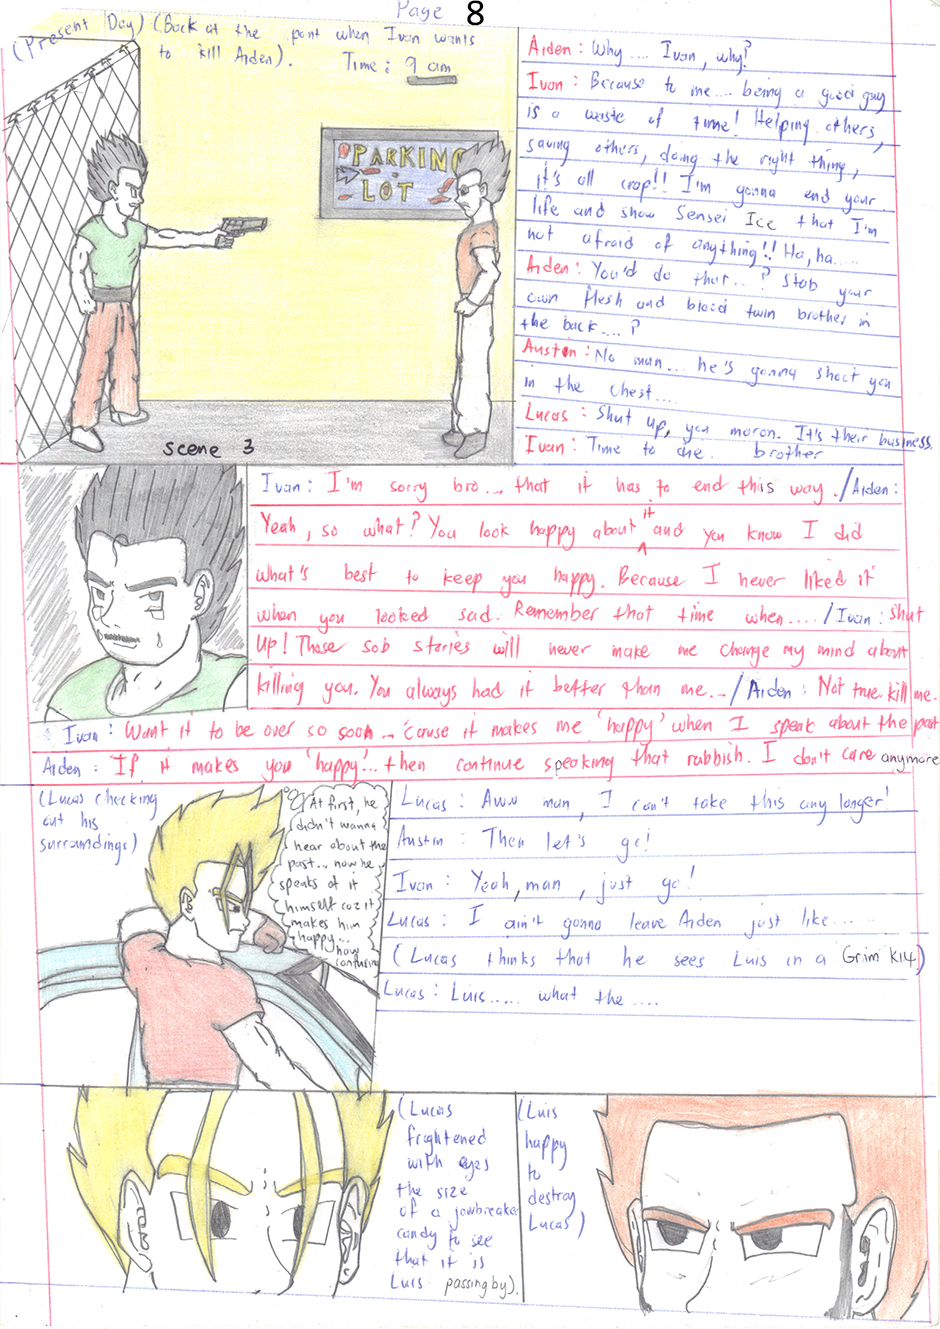 Page 8
(Present Day) (Back at the point when Ivan wants
to kill Aiden).
Time: 9 am
PARKING
LOT
Scene 3
Aiden: Why.... Ivan, why?
Ivan: Because to me.... being a good guy
is a waste of time! Helping others,
saving others, doing the right thing,
it's all crap!! I'm gonna end your
life and show Sensei Ice that I'm
not afraid of anything!! Ha, ha.....
Aiden: You'd do that...? Stab your
own flesh and blood twin brother in
the back....?
Austin: No man... he's gonna shoot you
in the chest....
Lucas: Shut up, you moron. It's their business.
Ivan: Time to die... brother
Ivan: I'm sorry bro.... that it has to end this way./Aiden:
Yeah, so what? You look happy about it and you know I did
what's best to keep you happy. Because I never liked it
when you looked sad. Remember that time when..../Ivan: Shut
Up! Those sob stories will never make me change my mind about
killing you. You always had it better than me../Aiden: Not true. kill me.
Ivan: Want it to be over so soon... 'cause it makes me 'happy' when I speak about the past
Aiden: If it makes you 'happy'... then continue speaking that rubbish. I don't care anymore
(Lucas checking
out his
surroundings)
At first, he
didn't wanna
hear about the
past... now he
speaks of it
himself coz it
makes him
happy...
how
confusing
Lucas: Aww man, I can't take this any longer!
Austin: Then let's go!
Ivan: Yeah, man, just go!
Lucas: I ain't gonna leave Aiden just like.....
(Lucas thinks that he sees Luis in a Grim K14)
Lucas: Luis..... what the....
(Lucas
frightened
with eyes
the size
of a jawbreaker
candy to see
that it is
Luis passing by).
(Luis
happy
to
destroy
Lucas)